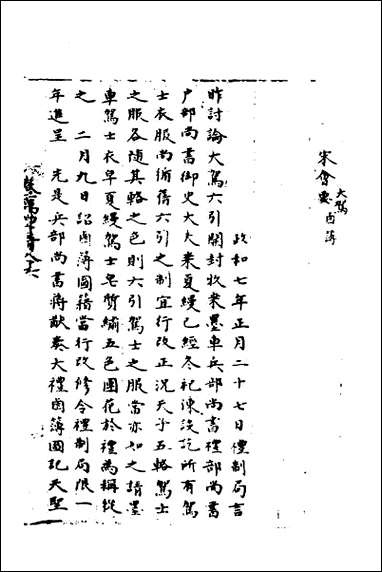 宋會要 大駕鹵簿
政和七年正月二十七日禮制局言
昨討論大駕六引開封牧乘墨車兵部尚書禮部尚書
户部尚書御史大夫乘夏縵已經冬祀陳設訖所有駕
士衣服尚循舊六引之制宜行改正況天子五輅駕士
之服各隨其輅之色則六引駕士之服當亦如之請墨
車駕士衣皁夏縵駕士皂質繡五色團花於禮為稱從
之 二月九日詔鹵簿圖籍當行改修令禮制局限一
年進呈 先是兵部尚書蔣猷奏大禮鹵簿圖記天聖